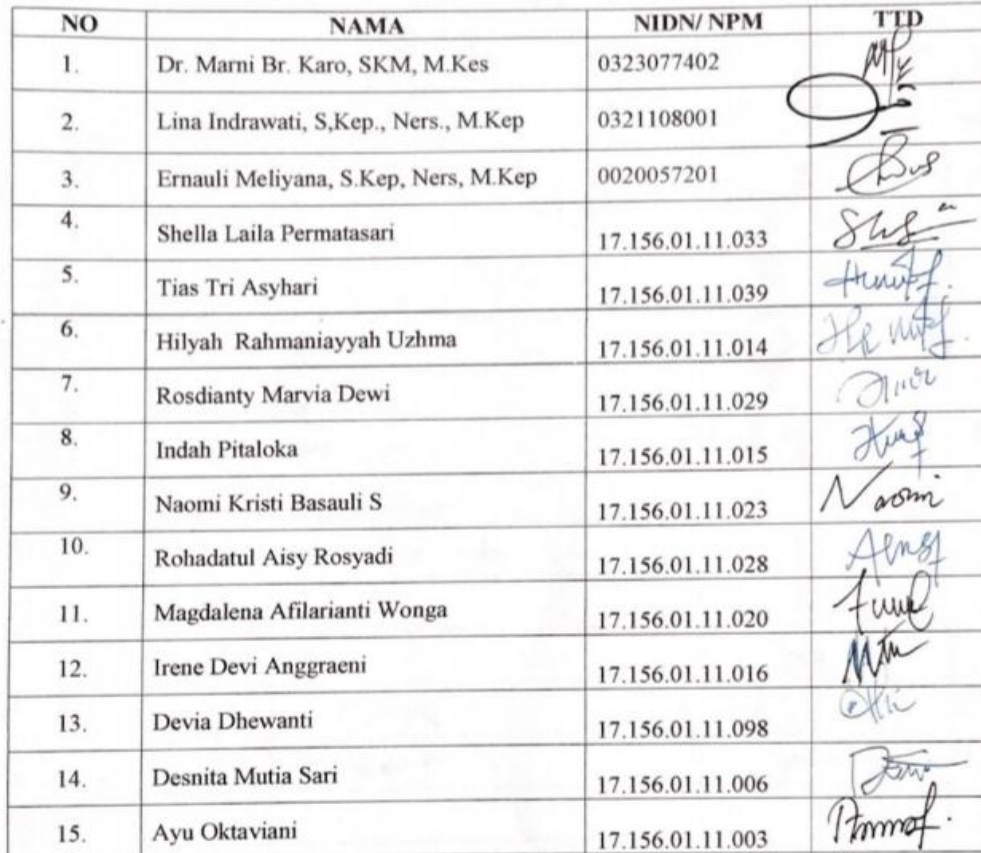 NO NAMA NIDN/ NPM TTD
1. Dr. Marni Br. Karo, SKM, M.Kes 0323077402
2. Lina Indrawati, S,Kep., Ners., M.Kep 0321108001
3. Ernauli Meliyana, S.Kep, Ners, M.Kep 0020057201
4. Shella Laila Permatasari 17.156.01.11.033
5. Tias Tri Asyhari 17.156.01.11.039
6. Hilyah Rahmaniayyah Uzhma 17.156.01.11.014
7. Rosdianty Marvia Dewi 17.156.01.11.029
8. Indah Pitaloka 17.156.01.11.015
9. Naomi Kristi Basauli S 17.156.01.11.023 Naomi
10. Rohadatul Aisy Rosyadi 17.156.01.11.028
11. Magdalena Afilarianti Wonga 17.156.01.11.020
12. Irene Devi Anggraeni 17.156.01.11.016
13. Devia Dhewanti 17.156.01.11.098
14. Desnita Mutia Sari 17.156.01.11.006
15. Ayu Oktaviani 17.156.01.11.003